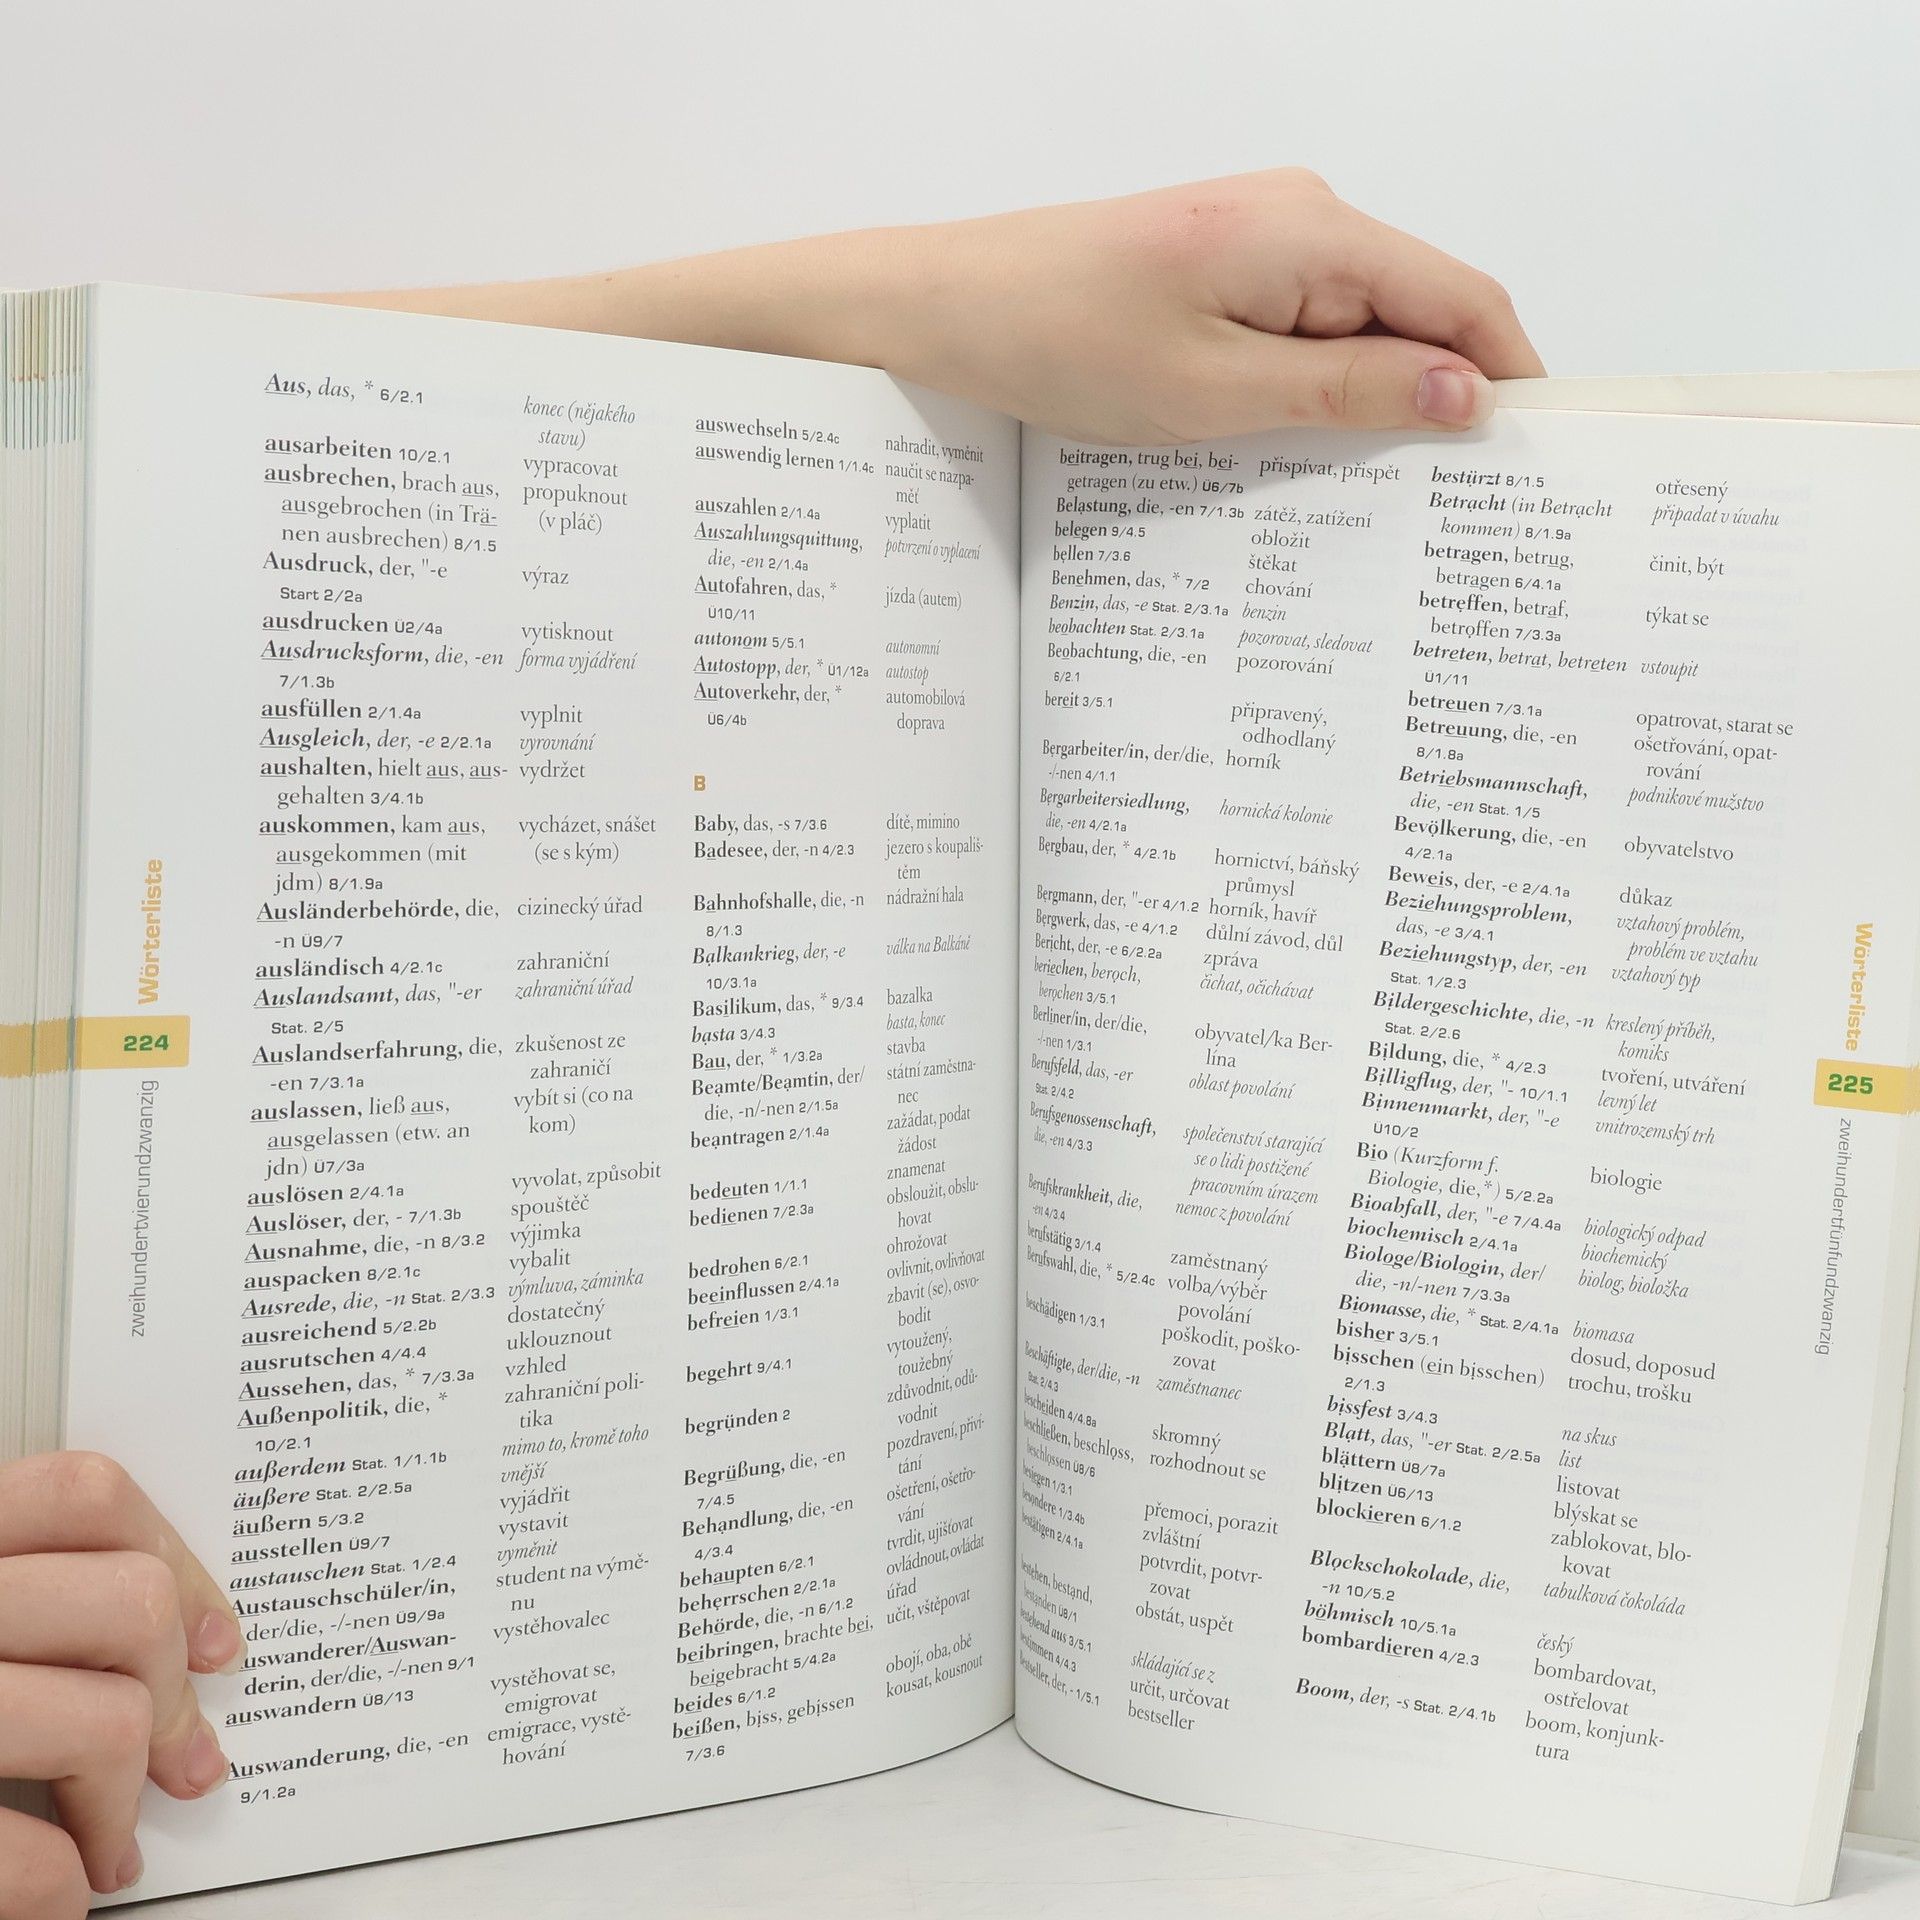 Aus, das, * 6/2.1
konec (nějakého
stavu)
ausarbeiten 10/2.1 vypracovat
ausbrechen, brach aus, propuknout
ausgebrochen (in Trä- (v pláč)
nen ausbrechen) 8/1.5
Ausdruck, der, "-e výraz
Start 2/2a
ausdrucken Ü2/4a vytisknout
Ausdrucksform, die, -en forma vyjádření
7/1.3b
ausfüllen 2/1.4a vyplnit
Ausgleich, der, -e 2/2.1a vyrovnání
aushalten, hielt aus, aus- vydržet
gehalten 3/4.1b
auskommen, kam aus, vycházet, snášet
ausgekommen (mit (se s kým)
jdm) 8/1.9a
Ausländerbehörde, die, cizinecký úřad
-n Ü9/7
ausländisch 4/2.1c zahraniční
Auslandsamt, das, "-er zahraniční úřad
Stat. 2/5
Auslandserfahrung, die, zkušenost ze
-en 7/3.1a zahraničí
auslassen, ließ aus, vybít si (co na
ausgelassen (etw. an kom)
jdn) Ü7/3a
auslösen 2/4.1a vyvolat, způsobit
Auslöser, der, - 7/1.3b spouštěč
Ausnahme, die, -n 8/3.2 výjimka
auspacken 8/2.1c vybalit
Ausrede, die, -n Stat. 2/3.3 výmluva, záminka
ausreichend 5/2.2b dostatečný
ausrutschen 4/4.4 uklouznout
Aussehen, das, * 7/3.3a vzhled
Außenpolitik, die, * zahraniční poli-
10/2.1 tika
außerdem Stat. 1/1.1b mimo to, kromě toho
äußere Stat. 2/2.5a vnější
äußern 5/3.2 vyjádřit
ausstellen Ü9/7 vystavit
austauschen Stat. 1/2.4 vyměnit
Austauschschüler/in, student na výmě-
der/die, -/-nen Ü9/9a nu
uswanderer/Auswan- vystěhovalec
derin, der/die, -/-nen 9/1
auswandern Ü8/13 vystěhovat se,
emigrovat
Auswanderung, die, -en emigrace, vystě-
9/1.2a hování
auswechseln 5/2.4c nahradit, vyměnit
auswendig lernen 1/1.4c naučit se nazpa-
měť
auszahlen 2/1.4a vyplatit
Auszahlungsquittung, potvrzení o vyplacení
die, -en 2/1.4a
Autofahren, das, * jízda (autem)
Ü10/11
autonom 5/5.1 autonomní
Autostopp, der, * Ü1/12a autostop
Autoverkehr, der, * automobilová
Ü6/4b doprava
B
Baby, das, -s 7/3.6 dítě, mimino
Badesee, der, -n 4/2.3 jezero s koupališ-
těm
Bahnhofshalle, die, -n nádražní hala
8/1.3
Balkankrieg, der, -e válka na Balkáně
10/3.1a
Basilikum, das, * 9/3.4 bazalka
basta 3/4.3 basta, konec
Bau, der, * 1/3.2a stavba
Beamte/Beamtin, der/ státní zaměstna-
die, -n/-nen 2/1.5a nec
beantragen 2/1.4a zažádat, podat
žádost
bedeuten 1/1.1 znamenat
bedienen 7/2.3a obsloužit, obslu-
hovat
bedrohen 6/2.1 ohrožovat
beeinflussen 2/4.1a ovlivnit, ovlivňovat
befreien 1/3.1 zbavit (se), osvo-
bodit
begehrt 9/4.1 vytoužený,
toužebný
begründen 2 zdůvodnit, odů-
vodnit
Begrüßung, die, -en pozdravení, přiví-
7/4.5 tání
Behandlung, die, -en ošetření, ošetřo-
4/3.4 vání
behaupten 6/2.1 tvrdit, ujišťovat
beherrschen 2/2.1a ovládnout, ovládat
Behörde, die, -n 6/1.2 úřad
beibringen, brachte bei, učit, vštěpovat
beigebracht 5/4.2a
beides 6/1.2 obojí, oba, obě
beißen, biss, gebissen kousat, kousnout
7/3.6
Wörterliste
224
zweihundertvierundzwanzig
beitragen, trug bei, bei- přispívat, přispět
getragen (zu etw.) Ü6/7b
Belastung, die, -en 7/1.3b zátěž, zatížení
belegen 9/4.5 obložit
bellen 7/3.6 štěkat
Benehmen, das, * 7/2 chování
Benzin, das, -e Stat. 2/3.1a benzin
beobachten Stat. 2/3.1a pozorovat, sledovat
Beobachtung, die, -en pozorování
6/2.1
bereit 3/5.1 připravený,
odhodlaný
Bergarbeiter/in, der/die, horník
-/-nen 4/1.1
Bergarbeitersiedlung, hornická kolonie
die, -en 4/2.1a
Bergbau, der, * 4/2.1b hornictví, báňský
průmysl
Bergmann, der, "-er 4/1.2 horník, havíř
Bergwerk, das, -e 4/1.2 důlní závod, důl
Bericht, der, -e 6/2.2a zpráva
beriechen, beroch, čichat, očichávat
berochen 3/5.1
Berliner/in, der/die, obyvatel/ka Ber-
-/-nen 1/3.1 lína
Berufsfeld, das, -er oblast povolání
Stat. 2/4.2
Berufsgenossenschaft, společenství starající
die, -en 4/3.3 se o lidi postižené
pracovním úrazem
Berufskrankheit, die, nemoc z povolání
-en 4/3.4
berufstätig 3/1.4 zaměstnaný
Berufswahl, die, * 5/2.4c volba/výběr
povolání
beschädigen 1/3.1 poškodit, poško-
zovat
Beschäftigte, der/die, -n zaměstnanec
Stat. 2/4.3
bescheiden 4/4.8a skromný
beschließen, beschloss, rozhodnout se
beschlossen Ü8/6
besiegen 1/3.1 přemoci, porazit
besondere 1/3.4b zvláštní
bestätigen 2/4.1a potvrdit, potvr-
zovat
bestehen, bestand, obstát, uspět
bestanden Ü8/1
bestehend aus 3/5.1 skládající se z
bestimmen 4/4.3 určit, určovat
Bestseller, der, - 1/5.1 bestseller
bestürzt 8/1.5 otřesený
Betracht (in Betracht připadat v úvahu
kommen) 8/1.9a
betragen, betrug, činit, být
betragen 6/4.1a
betreffen, betraf, týkat se
betroffen 7/3.3a
betreten, betrat, betreten vstoupit
Ü1/11
betreuen 7/3.1a opatrovat, starat se
Betreuung, die, -en ošetřování, opat-
8/1.8a rování
Betriebsmannschaft, podnikové mužstvo
die, -en Stat. 1/5
Bevölkerung, die, -en obyvatelstvo
4/2.1a
Beweis, der, -e 2/4.1a důkaz
Beziehungsproblem, vztahový problém,
das, -e 3/4.1 problém ve vztahu
Beziehungstyp, der, -en vztahový typ
Stat. 1/2.3
Bildergeschichte, die, -n kreslený příběh,
Stat. 2/2.6 komiks
Bildung, die, * 4/2.3 tvoření, utváření
Billigflug, der, "- 10/1.1 levný let
Binnenmarkt, der, "-e vnitrozemský trh
Ü10/2
Bio (Kurzform f. biologie
Biologie, die,*) 5/2.2a
Bioabfall, der, "-e 7/4.4a biologický odpad
biochemisch 2/4.1a biochemický
Biologe/Biologin, der/ biolog, bioložka
die, -n/-nen 7/3.3a
Biomasse, die, * Stat. 2/4.1a biomasa
bisher 3/5.1 dosud, doposud
bisschen (ein bisschen) trochu, trošku
2/1.3
bissfest 3/4.3 na skus
Blatt, das, "-er Stat. 2/2.5a list
blättern Ü8/7a listovat
blitzen Ü6/13 blýskat se
blockieren 6/1.2 zablokovat, blo-
kovat
Blockschokolade, die, tabulková čokoláda
-n 10/5.2
böhmisch 10/5.1a český
bombardieren 4/2.3 bombardovat,
ostřelovat
Boom, der, -s Stat. 2/4.1b boom, konjunk-
tura
Wörterliste
225
zweihundertfünfundzwanzig